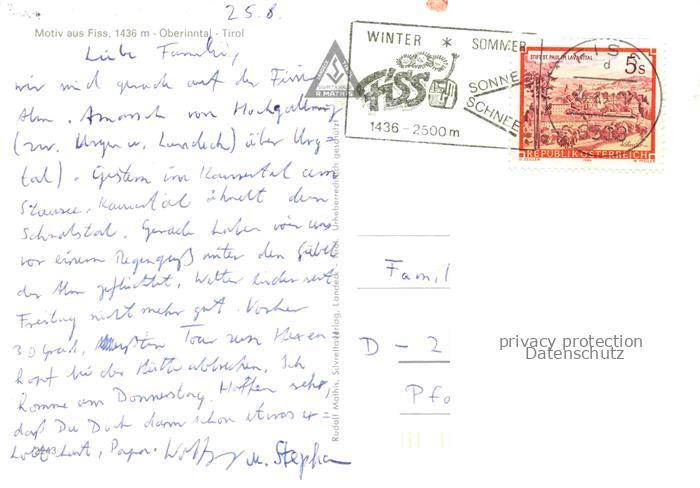 25.8.
Motiv aus Fiss, 1436 m - Oberinntal - Tirol
Liebe Familie,
wir sind gerade auf der
Alm. Anmarsch von Hochgallmig
(zw. Urgen u. Landeck) über Urg=
tal). Gestern im Kaunertal am
Stausee. Kaunertal ähnelt dem
Schnalstal. Gerade haben wir uns
vor einem Regenguß unter den Giebel
der Alm geflüchtet. Wetter leider seit
Freitag nicht mehr gut. Vorher
30 Grad, Tour zum Hexen
kopf bei der Hütte abbrechen. Ich
komme am Donnerstag. Hoffen sehr,
daß Du Dich dann schon etwas er=
holt hast, Papa.
u. Stephan
2243
R. MATHIS
Rudolf Mathis, Silvretta-Verlag, Landeck - Tirol Unheberrechtlich geschützt
WINTER * SOMMER
FISS
SONNE
SCHNEE
1436-2500 m
STIFT ST. PAUL IM LAVANTTAL
5s
REPUBLIK ÖSTERREICH
Famil
D - 2
Pfo
privacy protection
Datenschutz